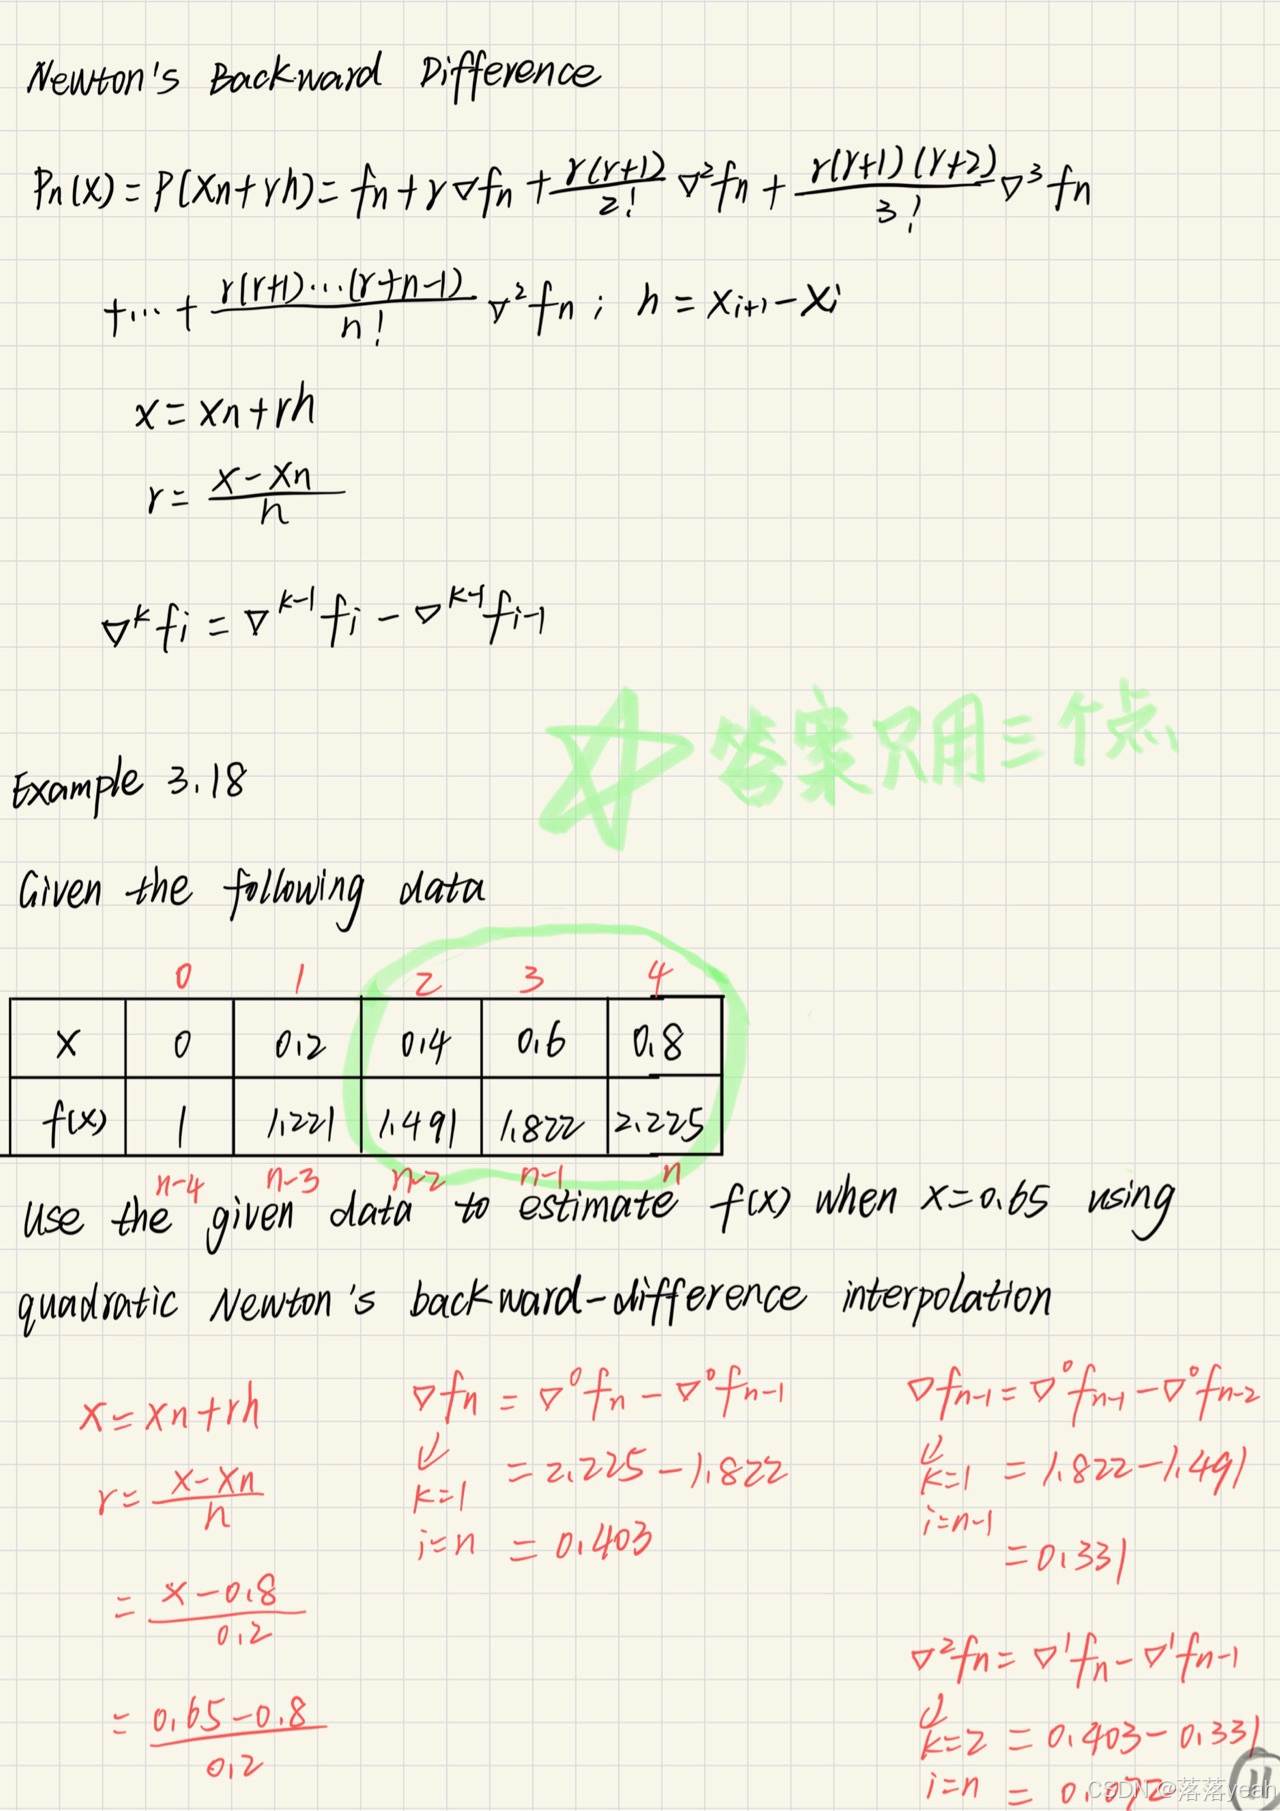 Newton's Backward Difference
Pn(x) = P(xn+rh) = fn + r∇fn + r(r+1)/2! ∇²fn + r(r+1)(r+2)/3! ∇³fn
+...+ r(r+1)...(r+n-1)/n! ∇²fn ; h = xi+1 - xi
x = xn + rh
r = x - xn / h
∇^k fi = ∇^k-1 fi - ∇^k-1 fi-1
☆ 答案只用三个点
Example 3.18
Given the following data
0 1 2 3 4
x 0 0.2 0.4 0.6 0.8
f(x) 1 1.221 1.491 1.822 2.225
n-4 n-3 n-2 n-1 n
use the given data to estimate f(x) when x=0.65 using
quadratic Newton's backward-difference interpolation
x = xn + rh
r = x - xn / h
= x - 0.8 / 0.2
= 0.65 - 0.8 / 0.2
∇fn = ∇⁰fn - ∇⁰fn-1
↓
k=1 = 2.225 - 1.822
i=n = 0.403
∇fn-1 = ∇⁰fn-1 - ∇⁰fn-2
↓
k=1 = 1.822 - 1.491
i=n-1
= 0.331
∇²fn = ∇¹fn - ∇¹fn-1
↓
k=2 = 0.403 - 0.331
i=n = 0.072
11
CSDN @落落yeah